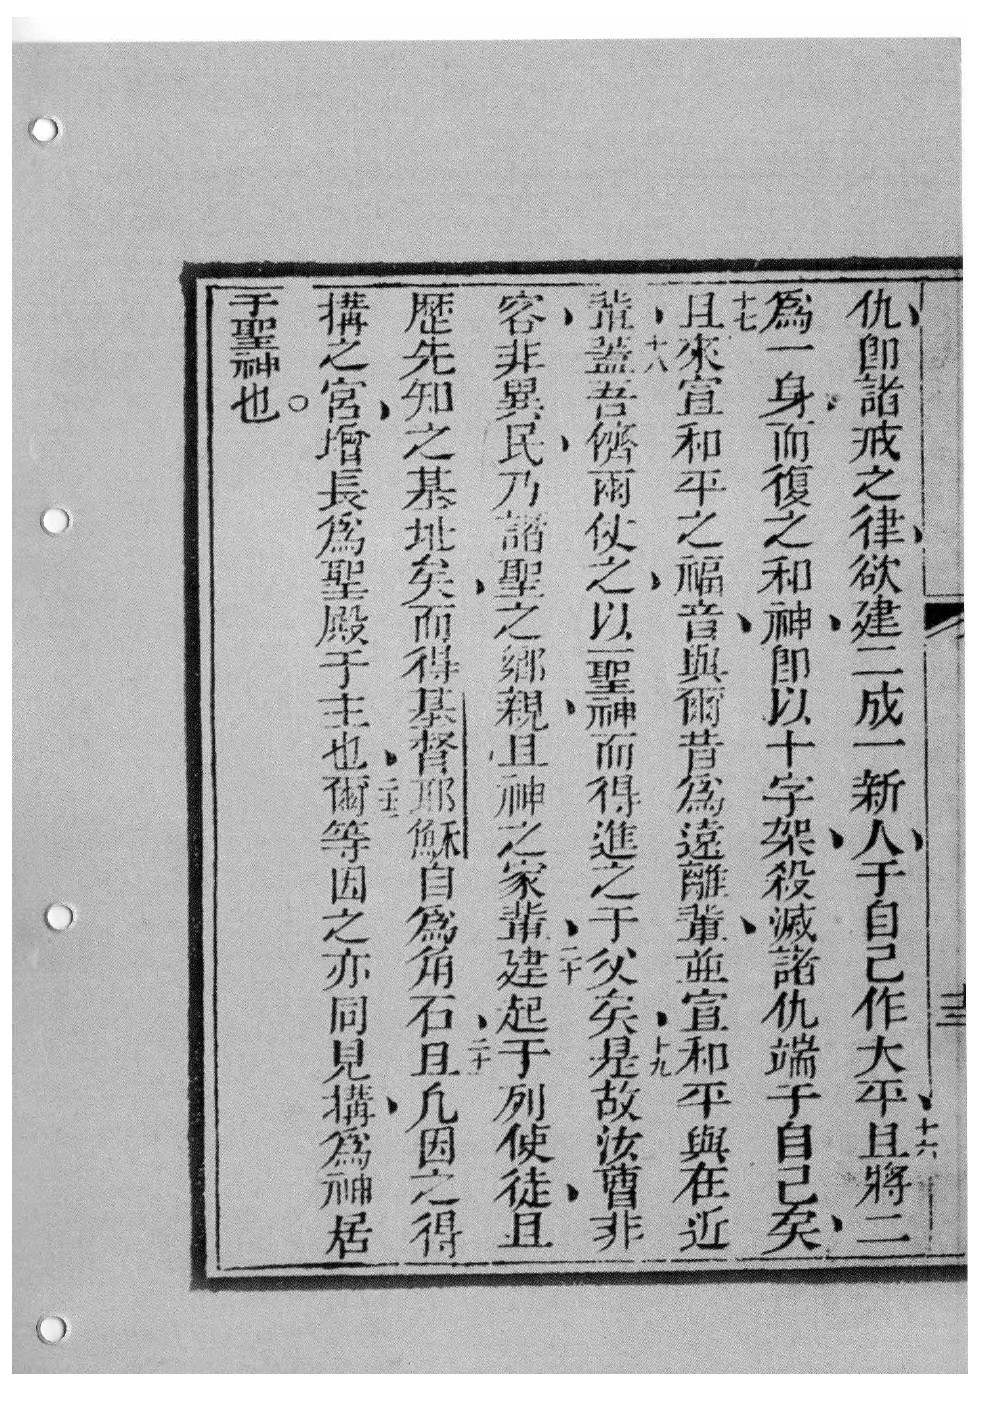 仇卽諸戒之律、欲建二成一新人、于自己作大平、十六且將二
爲一身、而復之和神、卽以十字架、殺滅諸仇端于自己矣、
十七且來宣和平之福音、與爾昔爲遠離輩、並宣和平與在近
輩、十八蓋吾儕兩仗之、以一聖神而得進之于父矣、十九是故汝曹非
容、非異民、乃諧聖之鄉親、且神之家輩、二十建起于列使徒、且
歷先知之基址矣、而得基督耶穌自爲角石、二十一且凡因之得
搆之宮、增長爲聖殿于主也、二十二爾等因之亦同見搆、爲神居
于聖神也。